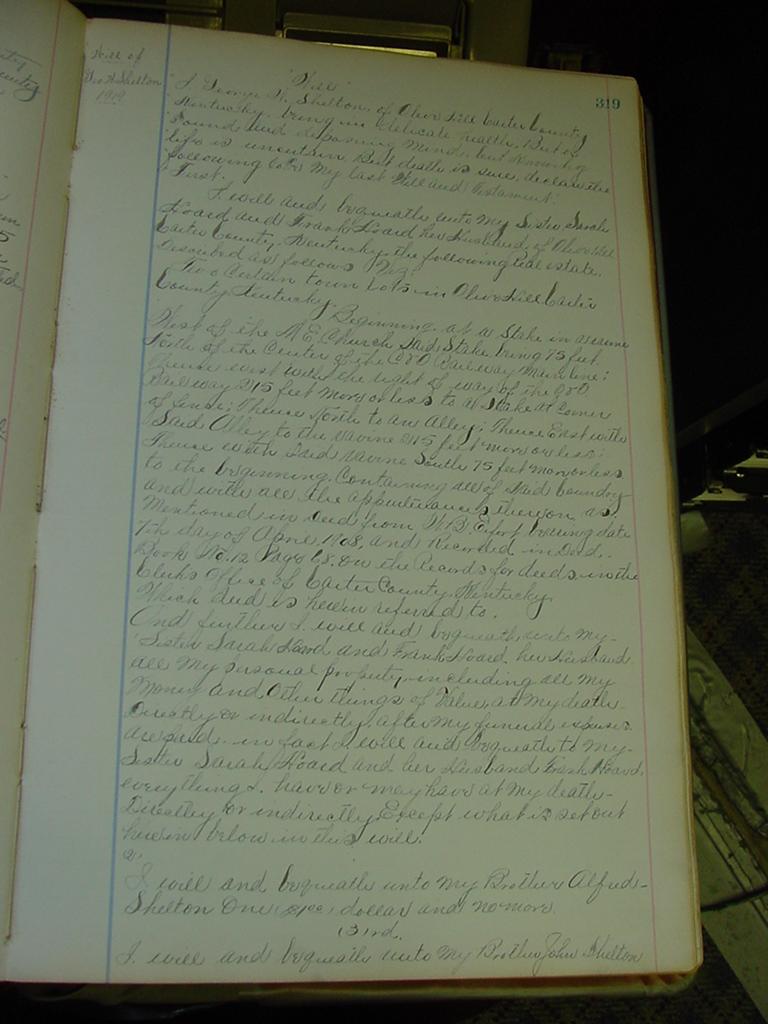 Will of
Geo. W. Shelton
1919
319
"Will"
I George W. Shelton, of Olive Hill Carter County
Kentucky, being in delicate health, But of
sound and disposing mind, and knowing
life is uncertain, But death is sure, declare the
following to be My last Will and Testament:
First.
I will and bequeath unto My Sister Sarah
Hoard and Frank Hoard her Husband, of Olive Hill
Carter County, Kentucky the following real estate,
Described as follows Viz:
Two Certain town lots in Olive Hill Carter
County Kentucky: Beginning at a Stake in
West of the M.E. Church Said Stake being 75 feet
North of the Center of the C&O Railway Main line;
thence west with the right of way of the C&O
Railway 215 feet more or less to a Stake at Corner
of fence; Thence North to an Alley; Thence East with
Said Alley to the ravine 215 feet more or less;
Thence with Said ravine South 75 feet more or less
to the beginning. Containing all of Said boundry
and with all the appurtenances thereon, as
Mentioned in deed from W.B. Eifort bearing date
7th day of April 1908, and Recorded in Deed-
Book No. 12 Page 68. on the Records for deeds in the
Clerks Office of Carter County Kentucky
Which deed is herein referred to.
And further I will and bequeath unto My-
Sister Sarah Hoard and Frank Hoard, her Husband
all My personal property including all My
Money and Other things of Value, at My death-
Directly or indirectly after My funeral expenses
are paid. in fact I will and bequeath to My-
Sister Sarah Hoard and her Husband Frank Hoard,
everything I have or may have at My death-
Directly or indirectly Except what is set out
herein below in this will.
I will and bequeath unto My Brother Alfred-
Shelton One ($1.00) dollar and no more
(3rd.
I will and bequeath unto My Brother John Shelton